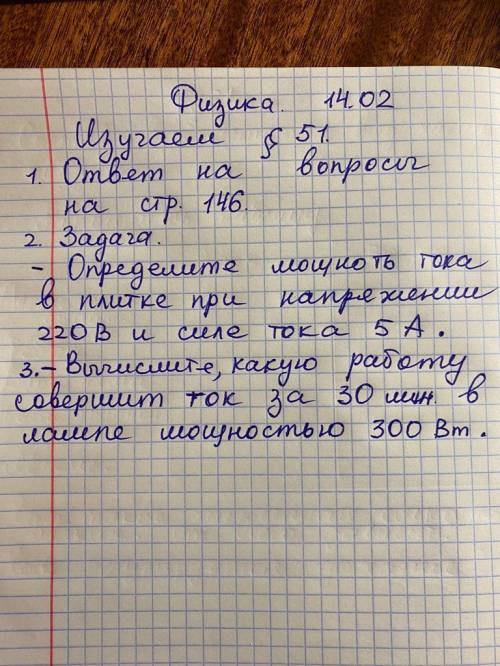 Физика. 14.02
Изучаем § 51.
1. Ответ на вопросы
на стр. 146.
2. Задача.
- Определите мощноть тока
в плитке при напряжении
220 В и силе тока 5 А.
3. - Вычислите, какую работу
совершит ток за 30 мин. в
лампе мощностью 300 Вт.